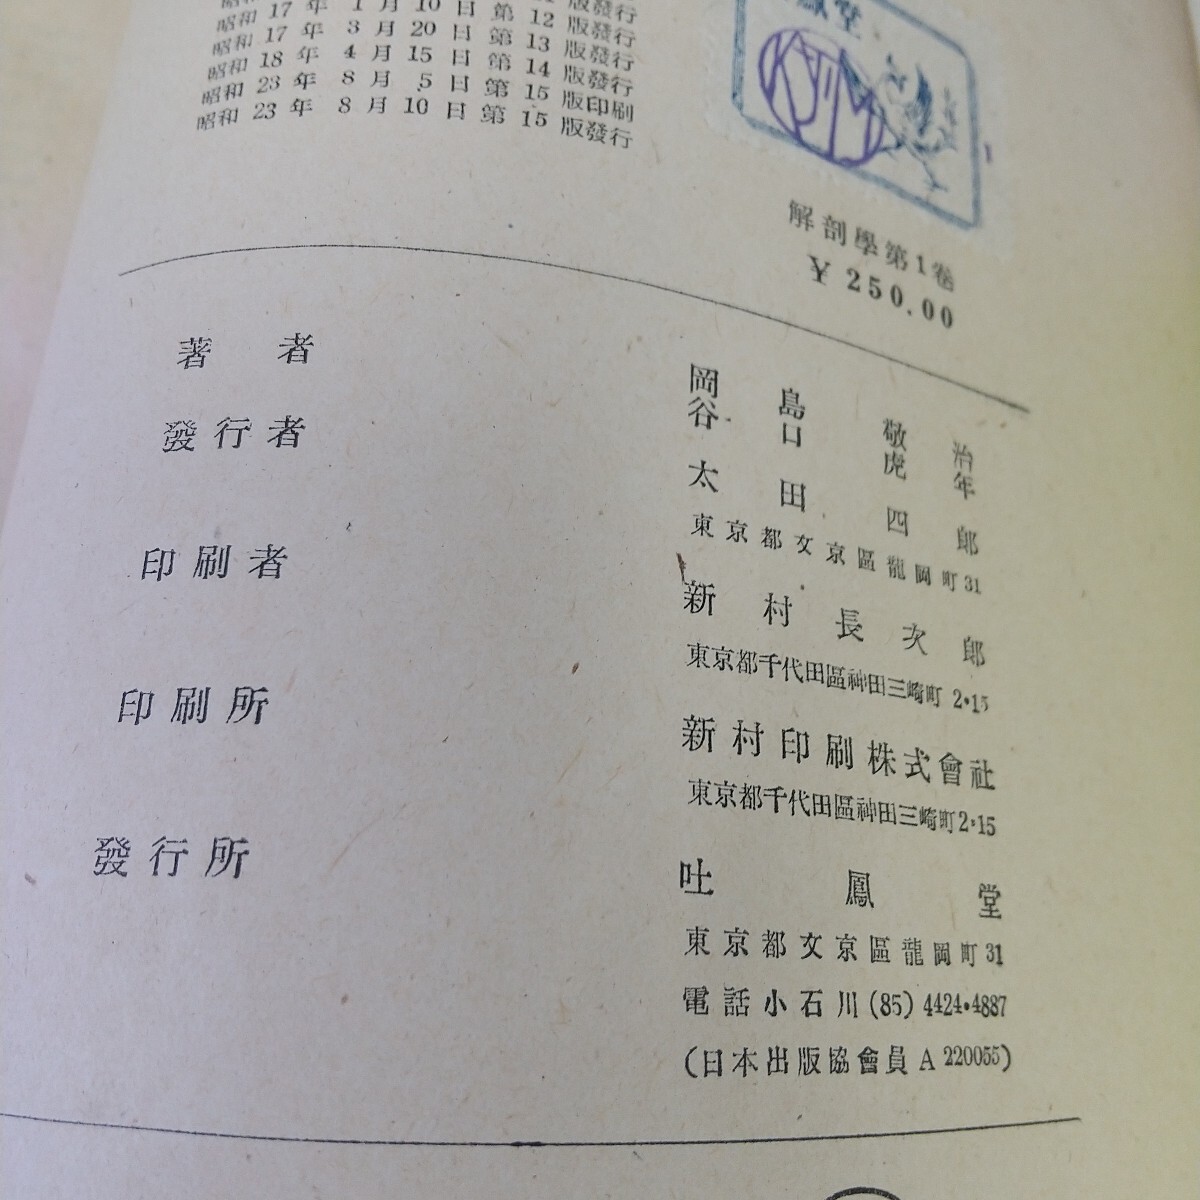 版發行
昭和 17 年 1 月 10 日 第 12 版發行
昭和 17 年 3 月 20 日 第 13 版發行
昭和 18 年 4 月 15 日 第 14 版發行
昭和 23 年 8 月 5 日 第 15 版印刷
昭和 23 年 8 月 10 日 第 15 版發行
鳳堂
解剖學第1卷
¥ 250.00
著者
岡島敬治
谷口虎年
發行者
太田四郎
東京都文京區龍岡町31
印刷者
新村長次郎
東京都千代田區神田三崎町 2・15
印刷所
新村印刷株式會社
東京都千代田區神田三崎町2・15
發行所
吐鳳堂
東京都文京區龍岡町31
電話小石川(85)4424・4887
(日本出版協會員 A 220055)